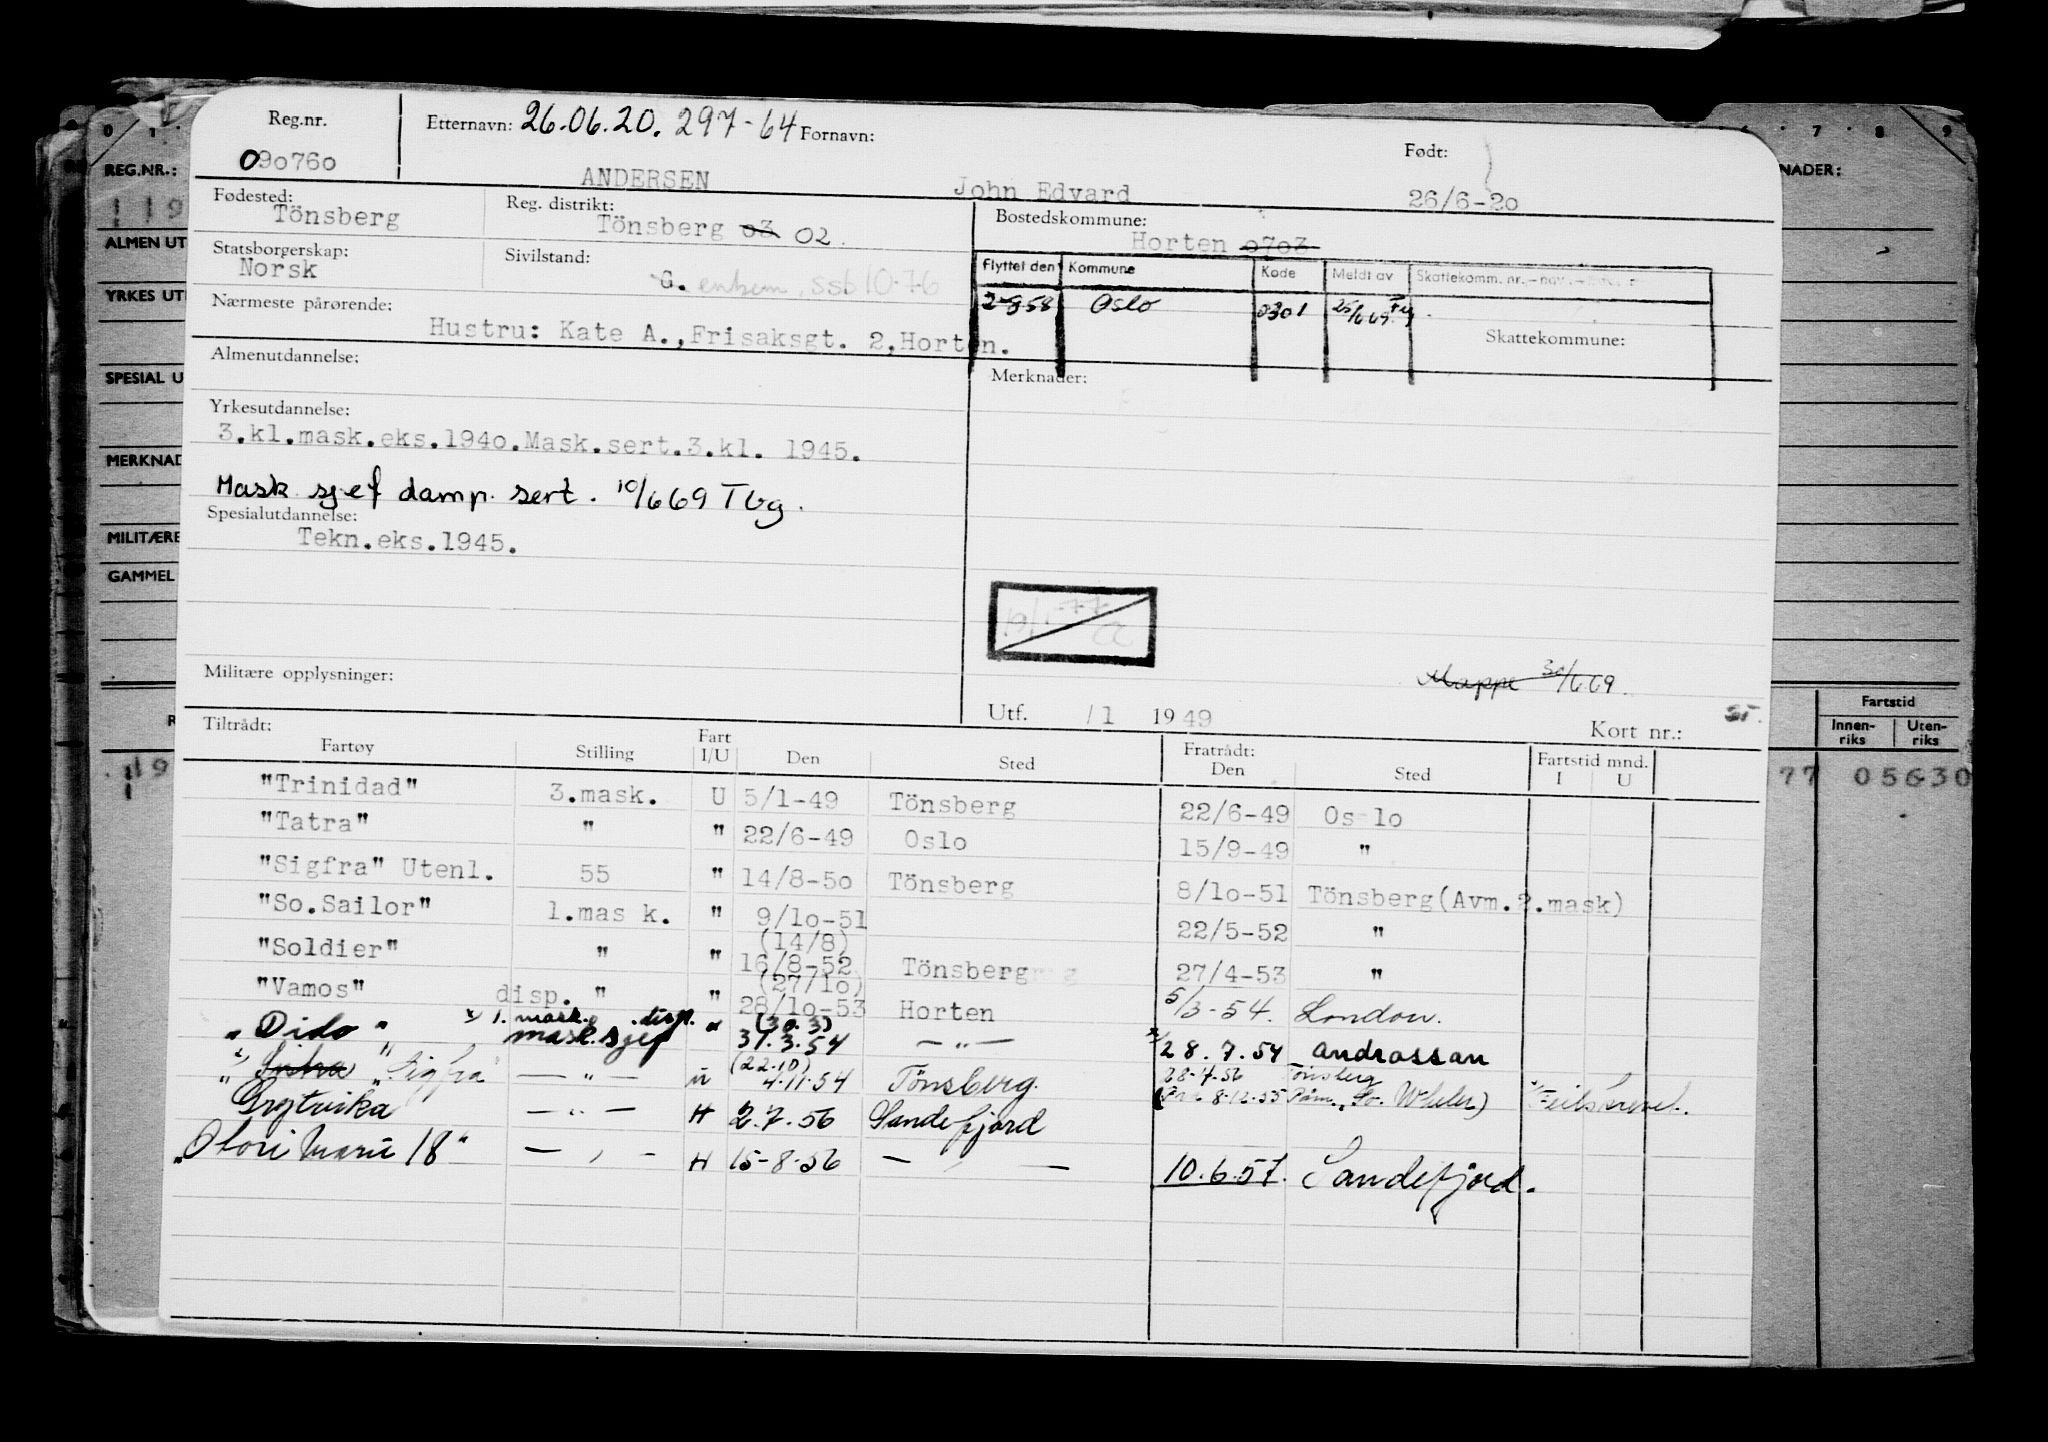 Reg.nr. Etternavn: 26.06.20. 297-64 Fornavn: Født:
090760 ANDERSEN John Edvard 26/6-20
Fødested: Reg. distrikt: Bostedskommune:
Tönsberg Tönsberg 03 02. Horten 0703
Statsborgerskap: Sivilstand:
Norsk G. enkem. ssb 10-76
Flyttet den Kommune Kode Meldt av Skattekomm. nr.
2-8 58 Oslo 0301 25/6 69
Nærmeste pårørende:
Hustru: Kate A.,Frisaksgt. 2,Horten. Skattekommune:
Almenutdannelse: Merknader:
Yrkesutdannelse:
3.kl.mask.eks.1940.Mask.sert.3.kl. 1945.
Mask sjef damp. sert. 10/6 69 Tbg.
Spesialutdannelse:
Tekn.eks.1945.
Militære opplysninger: Mappe 30/6 69.
Utf. /1 1949 Kort nr.:
Tiltrådt: Fratrådt: Fartstid mnd.
Fartøy Stilling Fart I/U Den Sted Den Sted I U
"Trinidad" 3.mask. U 5/1-49 Tönsberg 22/6-49 Oslo
"Tatra" " " 22/6-49 Oslo 15/9-49 "
"Sigfra" Utenl. 55 " 14/8-50 Tönsberg 8/10-51 Tönsberg(Avm.2.mask)
"So.Sailor" 1.mas k. " 9/10-51 22/5-52 "
(14/8)
"Soldier" " " 16/8-52 Tönsberg 27/4-53 "
(27/10)
"Vamos" disp. " " 28/10-53 Horten 5/3-54. London.
x) 1. mask. disp. (30.3)
"Dido" mask.sjef " 31.3.54 — " — 28.7.54 Androssan
(22.10) 28-4-56 Tönsberg
"Sigfra" — " — u 4.11.54 Tönsberg. 8-12-55 So. Whaler) Feilskrevet.
Grytvika — " — H 2.7.56 Sandefjord
"Otori Maru 18" — " — H 15-8-56 — " — 10.6.57. Sandefjord.
REG.NR.:
119
ALMEN UT
YRKES UT
SPESIAL U
MERKNAD
MILITÆRE
GAMMEL
7 8 9
NADER:
Fartstid
Innenriks Utenriks
77 05630